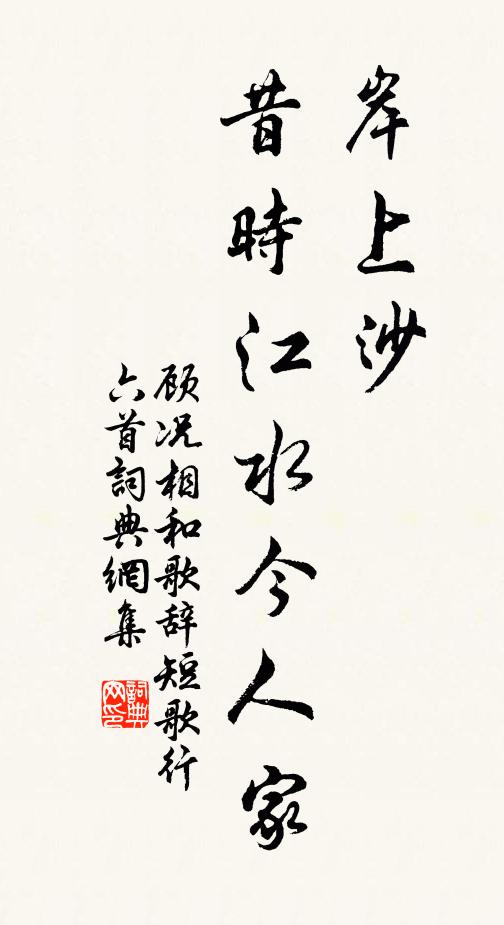 岸上沙
昔時江水今人家
顾况相和歌辞短歌行
六首詞典網集
詞典
网印